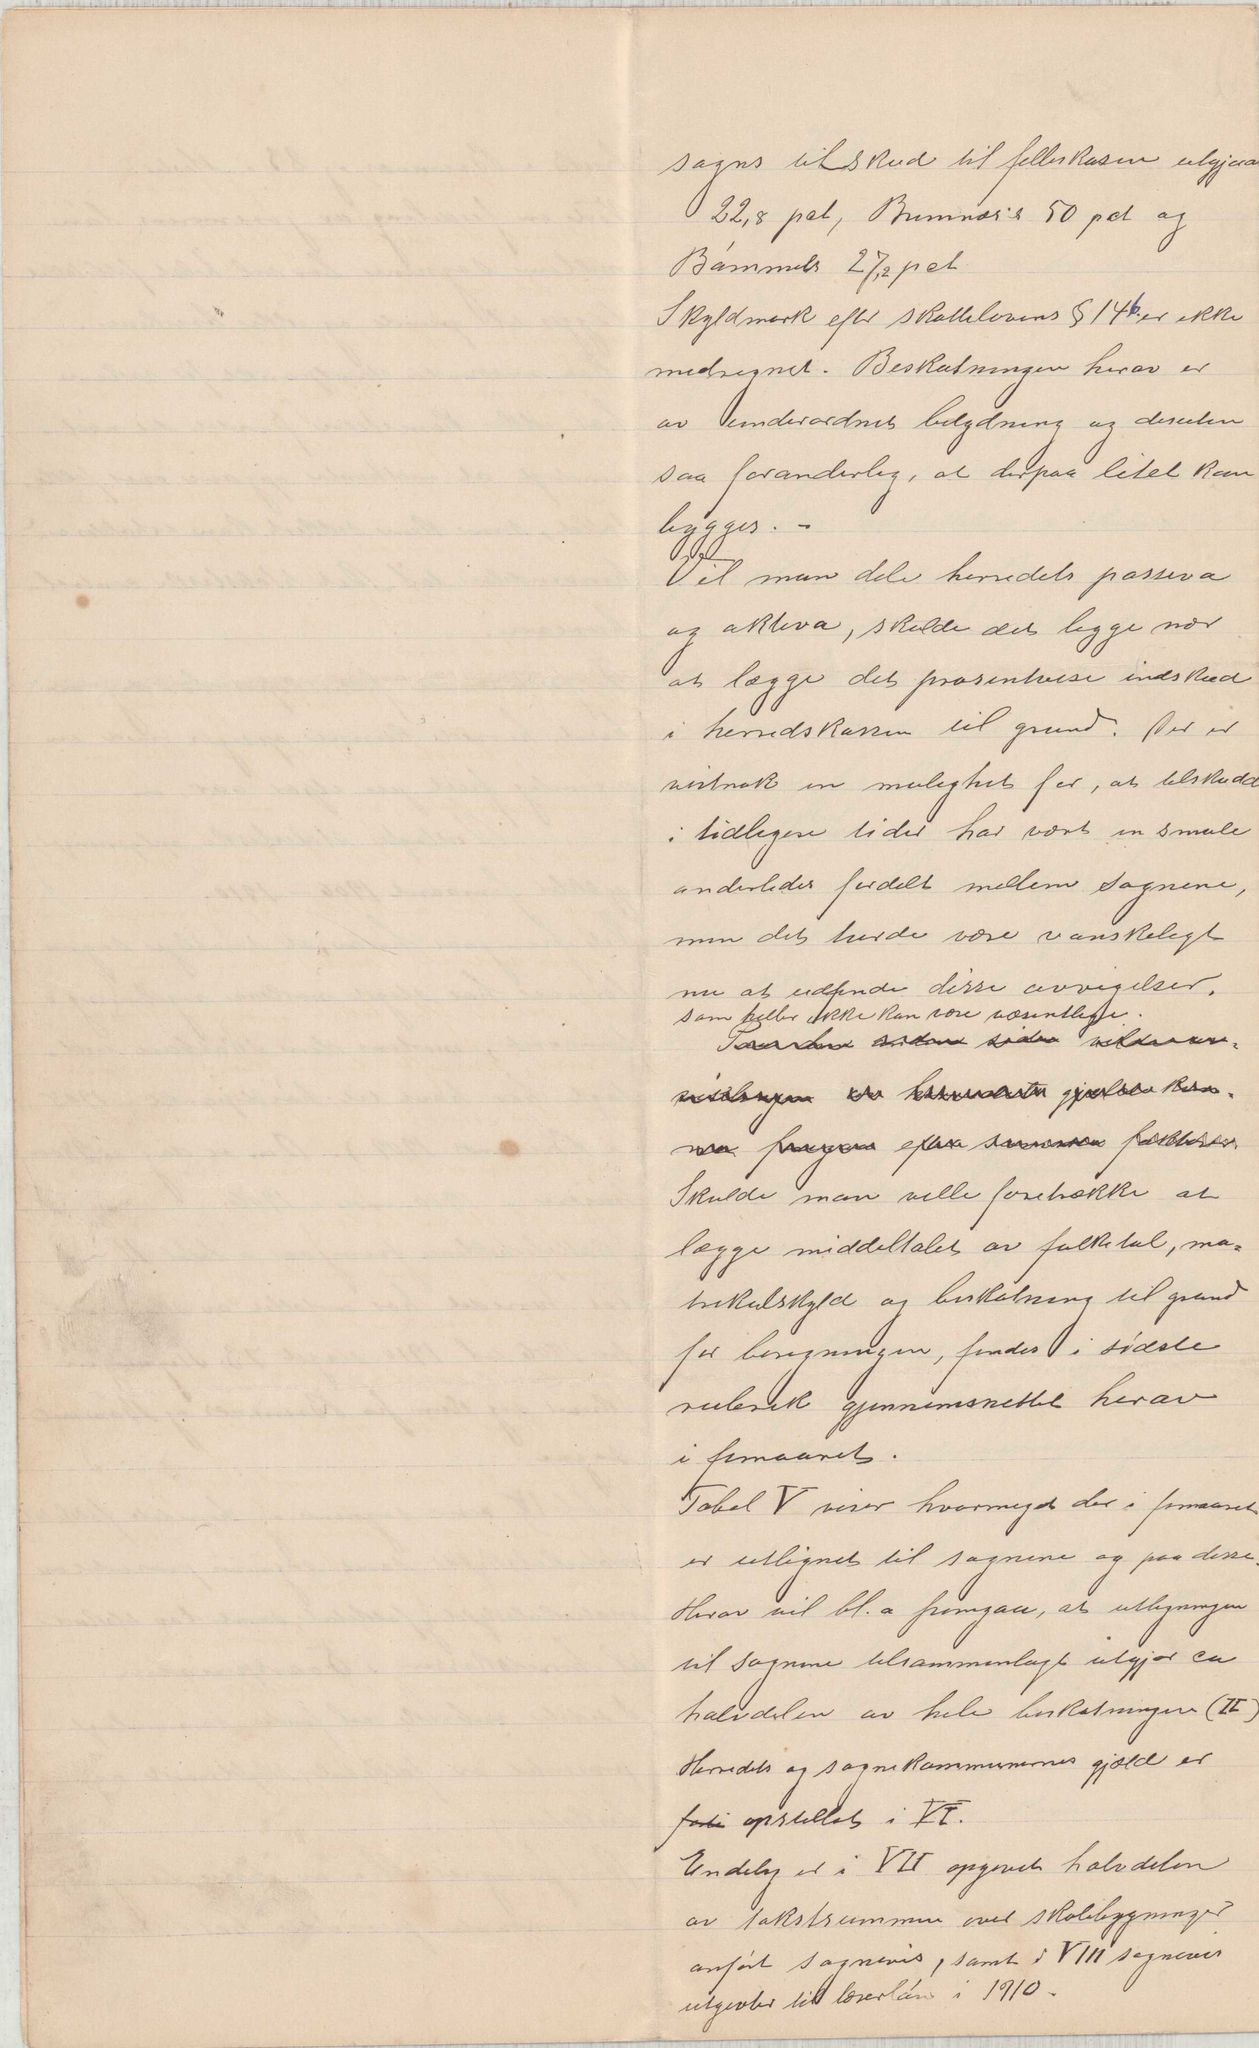 sogns tilskud til felleskassen utgjøra
22,8 pct, Bremnæs's 50 pct og
Bømmels 27,2 pct
Skyldmark efter skattelovens § 14b. er ikke
medregnet. Beskatningen herav er
av underordnet betydning og desuten
saa foranderlig, at derpaa litet kan
bygges. –
Vil man dele herredets passiva
og aktiva, skulde det ligge nær
at lægge det prosentvise indskud
i herredskassen til grund. Der er
vistnok en mulighet for, at tilskudd
i tidligere tider har vært en smule
anderledes fordelt mellem sognene,
men det turde være vanskeligt
nu at utfinde disse avvigelser,
som heller ikke kan være væsentlige.
Skulde man ville foretrække at
lægge middeltalet av folketal, ma-
trikulskyld og beskatning til grund
for beregningen, findes i sidste
rubrik gjennemsnittet herav
i femaaret.
Tabel V viser hvormeget der i femaaret
er utlignet til sognene og paa disse.
Herav vil bl.a fremgaa, at utligningen
til sognene tilsammenlagt utgjør ca
halvdelen av hele beskatningen (II)
Herredets og sognekommunernes gjæld er
opstillet i VI.
Endelig er i VII opgivet halvdelen
av takstsummen over skolebygninger
anført sognevis, samt i VIII sognevis
utgivter til lærerløn i 1910.